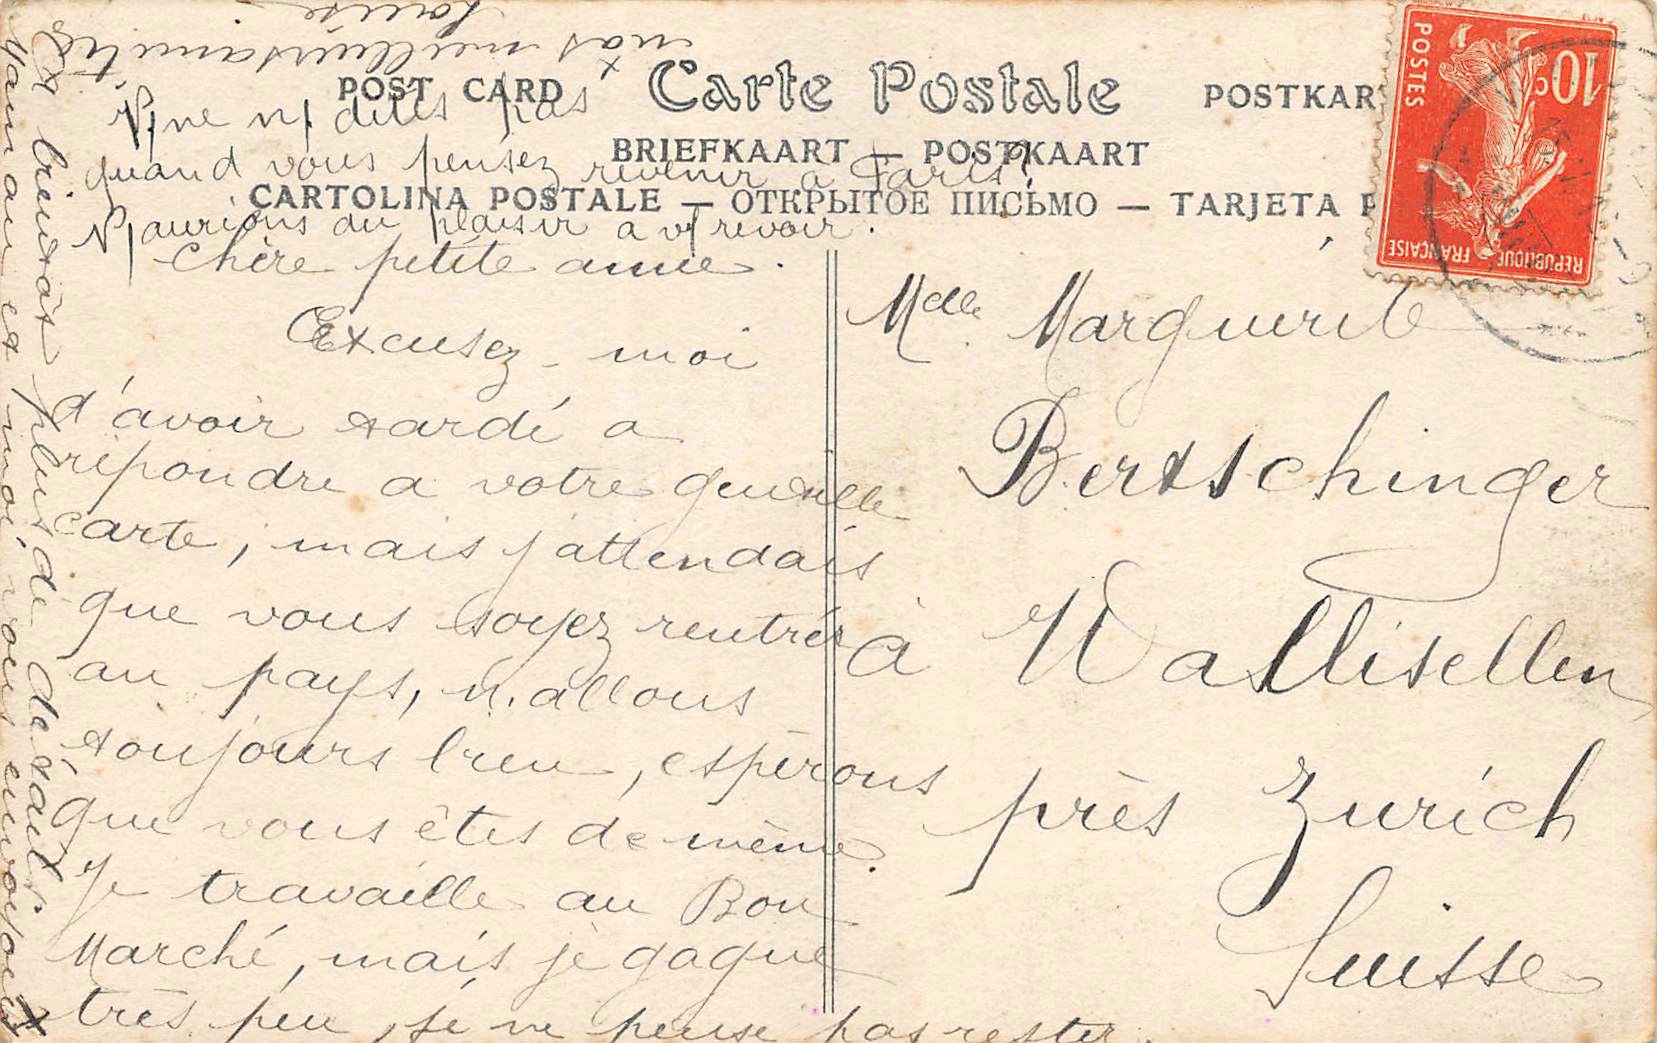 POST CARD Carte Postale POSTKAR
BRIEFKAART — POSTKAART
CARTOLINA POSTALE — ОТКРЫТОЕ ПИСЬМО — TARJETA P
POSTES
10c
REPUBLIQUE FRANÇAISE
Chère petite amie.
Excusez-moi
d'avoir tardé a
répondre a votre gentille
carte, mais j'attendais
que vous soyez rentrés
au pays, n. allons
toujours bien, espérons
que vous êtes de même.
Je travaille au Bon
Marché, mais je gagne
très peu, je ne pense pas rester.
ne n/ dites pas
quand vous pensez revenir a Paris?
N/ aurions du plaisir a v/ revoir.
A bientôt plus de détails
Maman et moi, vous envoyons
nos meilleurs amitiés
Louise
Mdlle Marguerite
Bertschinger
à Wallisellen
près Zurich
Suisse